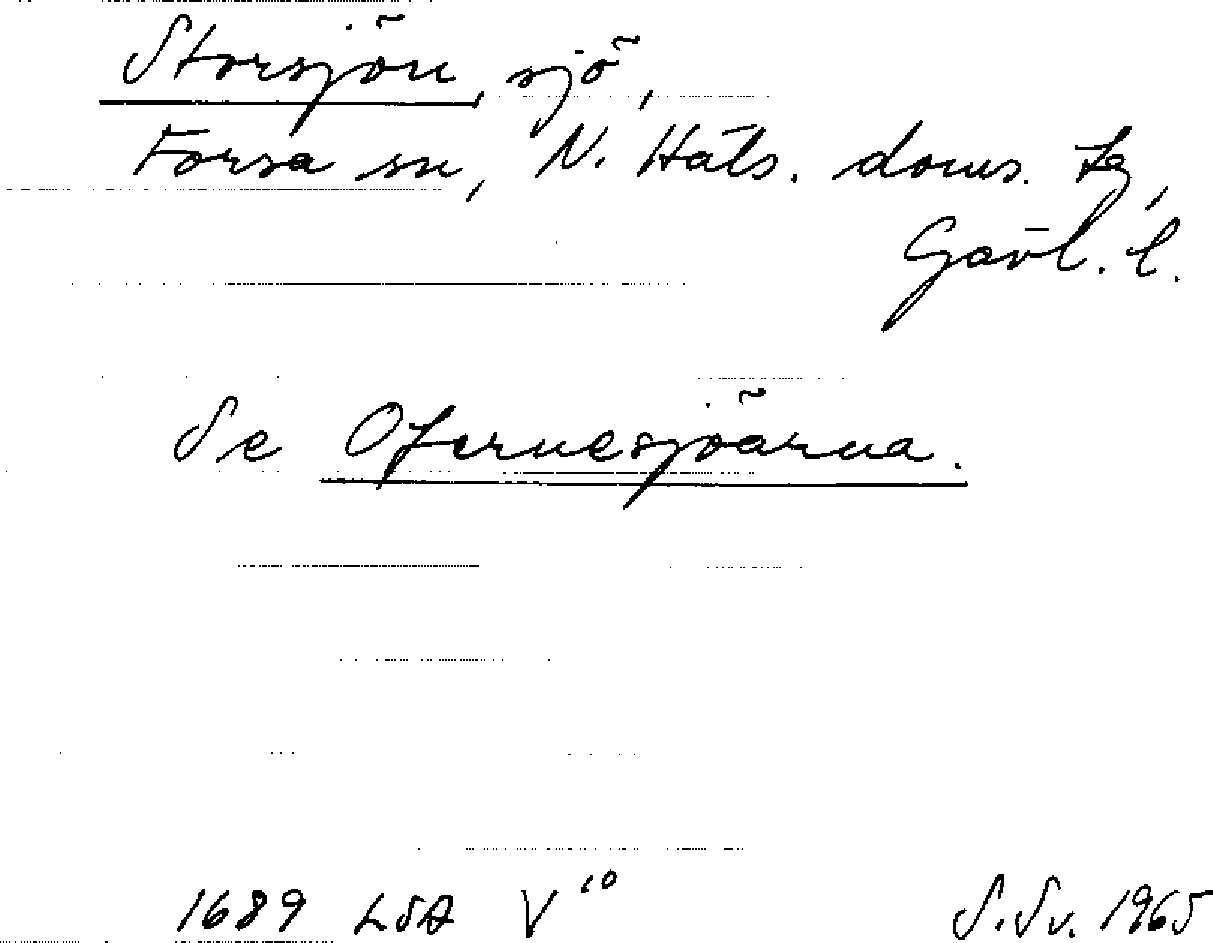 Storsjön, sjö,
Forsa sn, N. Häls. doms. tg,
Gävl. l.
Se Ofernesjöarna.
1689 LSA V 10
S. Sv. 1965